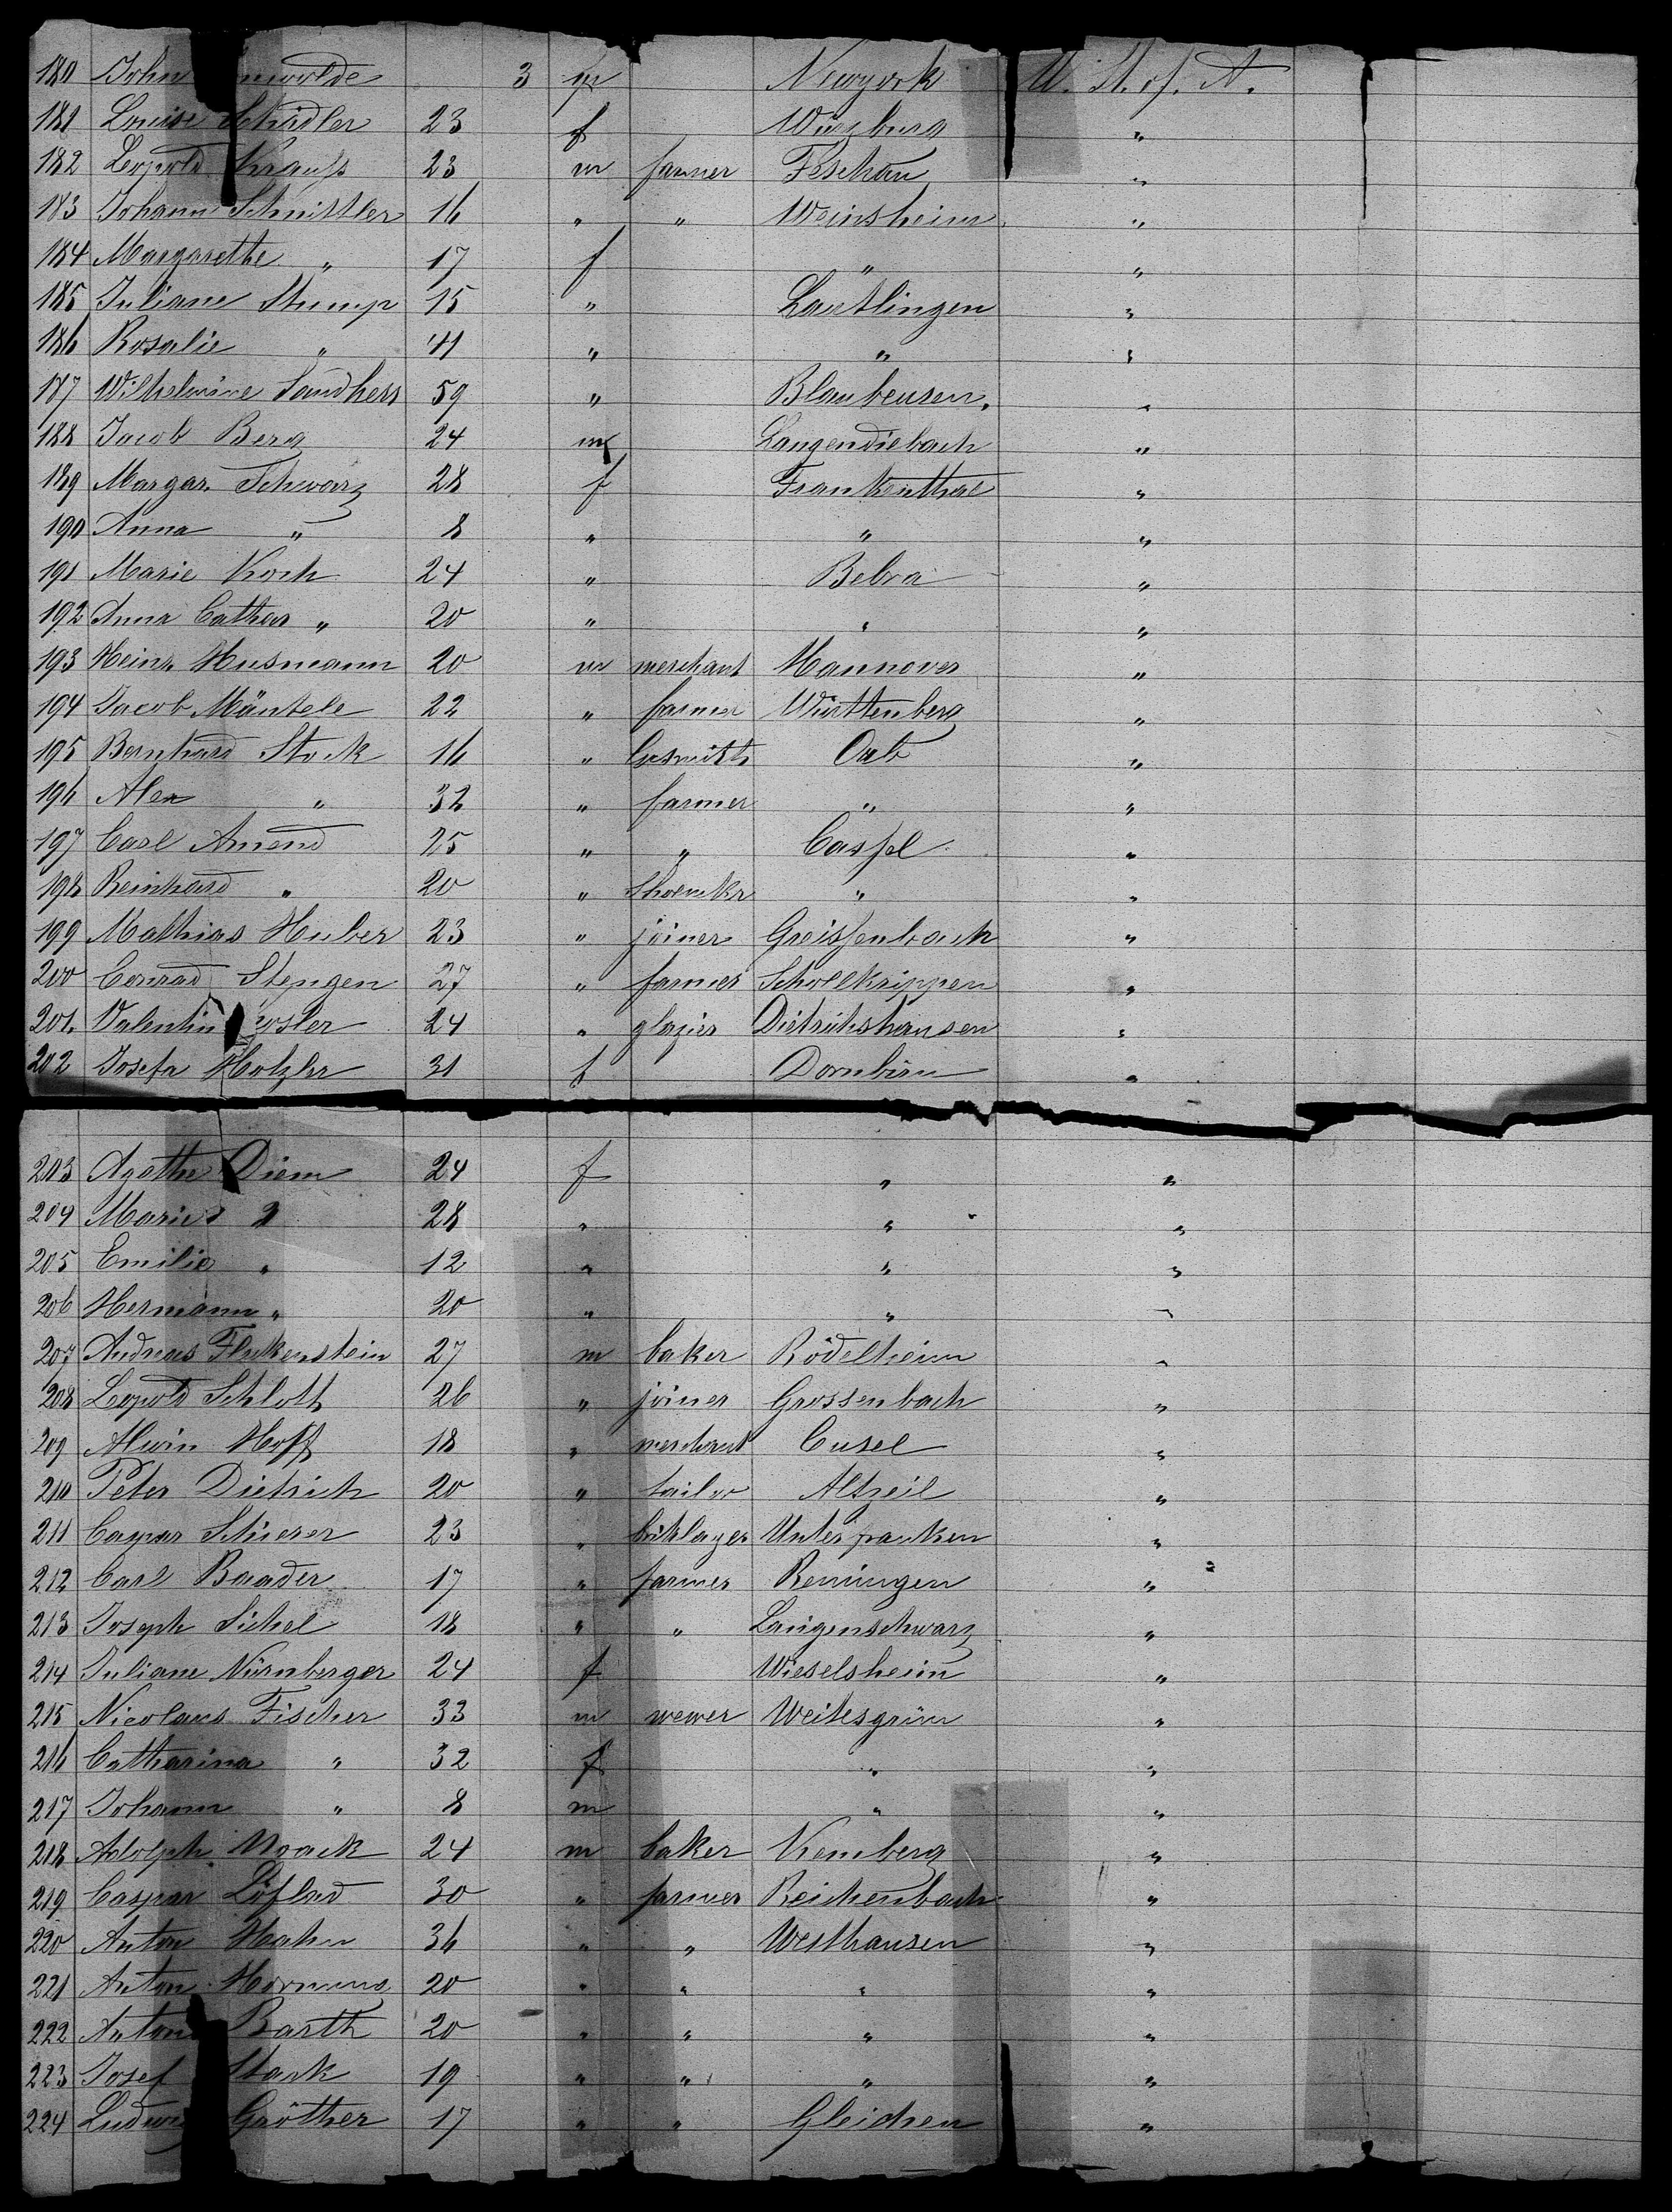 180 John 3 m Newyork U. St. of. A.
181 Louise Schidler 23 f Würzburg "
182 Leopold Krauss 23 m farmer Feschau "
183 Johann Schnittler 16 " " Weinsheim "
184 Margarethe " 17 f " "
185 Juliane Stump 15 " Lautlingen "
186 Rosalie " 41 " " "
187 Wilhelmine Sandherr 59 " Blaubeuren. "
188 Jacob Berg 24 m Langendiebach "
189 Margar. Schwarz 28 f Frankenthal "
190 Anna " 8 " " "
191 Marie Koch 24 " Bebra "
192 Anna Cathar " 20 " " "
193 Heinr. Husmann 20 m merchant Hannover "
194 Jacob Mäntele 22 " farmer Württenberg "
195 Bernhard Stock 16 " Orb "
196 Alex " 32 " farmer " "
197 Carl Amend 25 " " Cassel "
198 Reinhard " 20 " shoemkr " "
199 Mathias Huber 23 " joiner Greissenbach "
200 Conrad Stengen 27 " farmer Schollkrippen "
201. Valentin 24 " glazier Dietrichshausen "
202 Josefa Hotzler 31 f Dornbirn "
203 Agathe Diem 24 f " "
204 Marie " 28 " " "
205 Emilie " 12 " " "
206 Hermann " 20 " " "
207 Andreas Flekenstein 27 m baker Rödelheim "
208 Leopold Schlott 26 " joiner Grossenbach "
209 Alwin Hoff 18 " merchant Cusel "
210 Peter Dietrich 20 " tailor Altzeil "
211 Caspar Scherer 23 " briklayer Unterpanken "
212 Carl Baader 17 " farmer Renningen "
213 Joseph Sichel 18 " " Langenschwarz "
214 Juliane Nürnberger 24 f Wieselsheim "
215 Nicolaus Fischer 33 m wewer Weitesgrün "
216 Catharina " 32 f " "
217 Johann " 8 m " "
218 Adolph Noack 24 m baker Kemberg "
219 Caspar Löflad 30 " farmer Reichenbach "
220 Anton Hahn 36 " " Westhausen "
221 Anton Hornung 20 " " " "
222 Anton Barth 20 " " " "
223 Josef Stark 19 " " " "
224 Ludwig Gröther 17 " " Gleichen "